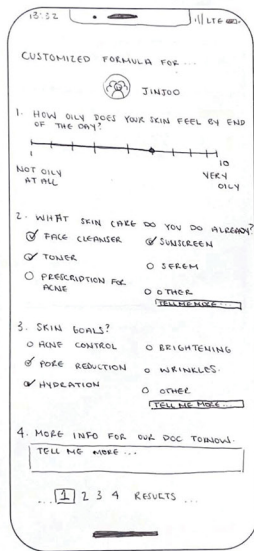 13:32 LTE
CUSTOMIZED FORMULA FOR ...
JINJOO
1. HOW OILY DOES YOUR SKIN FEEL BY END
OF THE DAY?
1 10
NOT OILY
AT ALL
VERY
OILY
2. WHAT SKIN CARE DO YOU DO ALREADY?
FACE CLEANSER
TONER
PRESCRIPTION FOR
ACNE
SUNSCREEN
SEREM
OTHER
TELL ME MORE ...
3. SKIN GOALS?
ACNE CONTROL
PORE REDUCTION
HYDRATION
BRIGHTENING
WRINKLES.
OTHER
TELL ME MORE ...
4. MORE INFO FOR OUR DOC TO KNOW.
TELL ME MORE ...
... 1 2 3 4 RESULTS ...